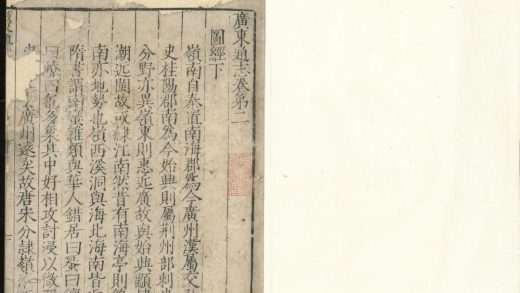 廣東通志卷第二
圖經下
嶺南自秦道南海郡爲今廣州漢屬交
史桂陽郡南爲今始興則屬荆州部刺史
分野亦異嶺東則惠近廣故與始興
潮近閩故或隷江南然昔有南海亭則
南亦地勢也嶺西溪洞與海北海南皆
隋書謂南蠻雜類與華人錯居曰蜑曰
曰獠曰㐌多棄其中好相攻討浸以微
廣州遠矣故唐宋分隷嶺